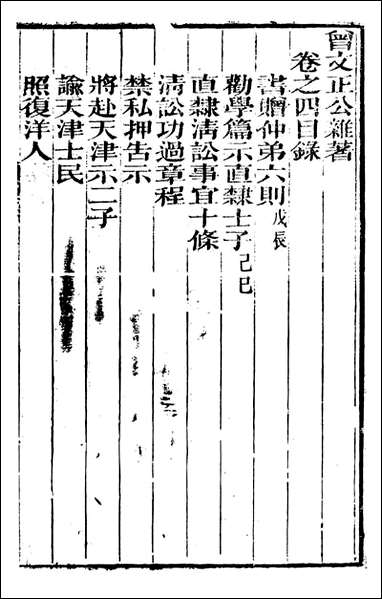 曾文正公雜著
卷之四目錄
書贈仲弟六則戊辰
勸學篇示直隸士子己巳
直隸清訟事宜十條
清訟功過章程
禁私押告示
將赴天津示二子
諭天津士民
照復洋人